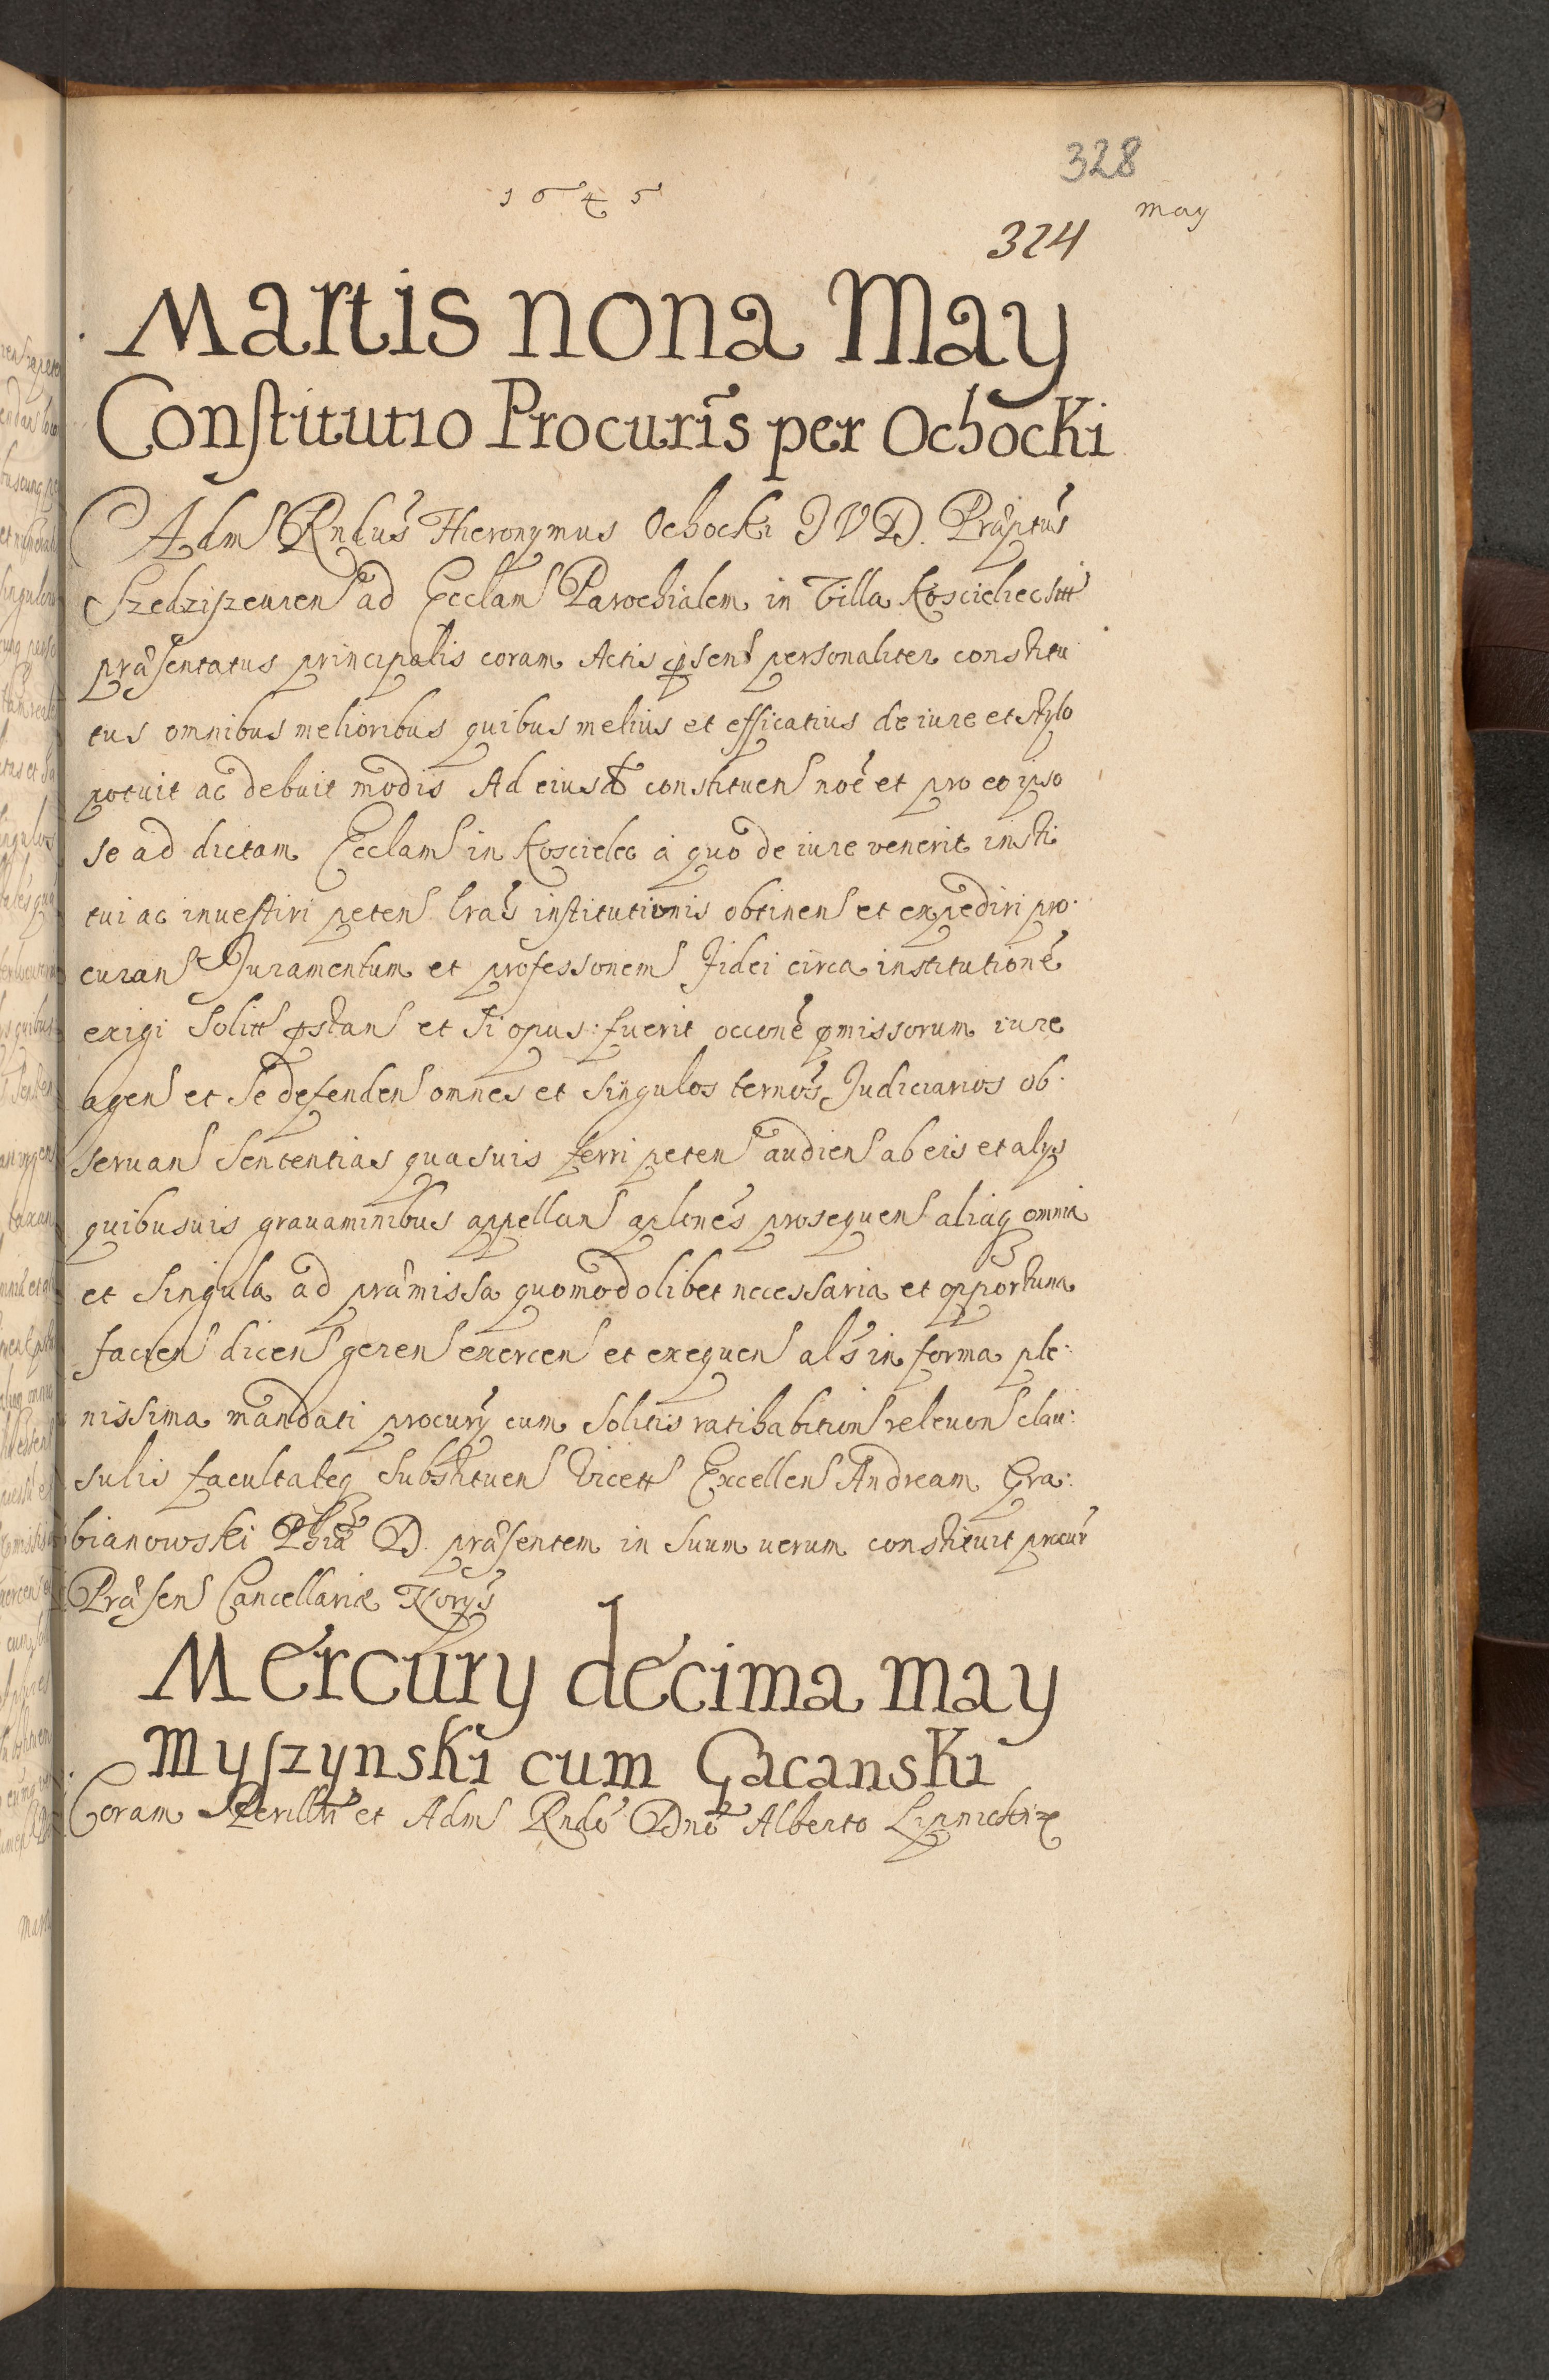 328
1645
may
324
Martis nona May
Constitutio Procuris per Ochocki
Adm Rndus Hieronymus Ochocki J V D. Præptus
Szedziszeuien ad Ecclam Parochialem in Villa Koscielec sitt
præsentatus principalis coram Actis psent personaliter constitu
tus omnibus melioribus quibus melius et efficatius de iure et stylo
potuit ac debuit modis Ad eiusd constituen noe et pro eo ipso
se ad dictam Ecclam in Koscielec a quo de iure venerit insti
tui ac inuestiri peten lras institutionis obtinen et expediri pro
curan Juramentum et professonem fidei circa institutione
exigi solitt pstan et si opus fuerit occone pmissorum iure
agen et se defenden omnes et singulos ternos Judiciarios ob
seruan sententias quasuis ferri peten audien ab eis et alys
quibusuis grauaminibus appellan aplones prosequen aliaq omnia
et singula ad præmissa quomodolibet necessaria et opportuna
facien dicen geren exercen et exequen als in forma ple:
nissima mandati procury cum solitis ratihabition releuon clau:
sulis facultateq substituen Vicett Excellen Andream Gra:
bianowski Phiæ D. præsentem in suum uerum constituit procur
Præsen Cancellariæ Norys
Mercury decima may
Myszynski cum Gacanski
Coram Perilltri et Adm Rndo Dno Alberto